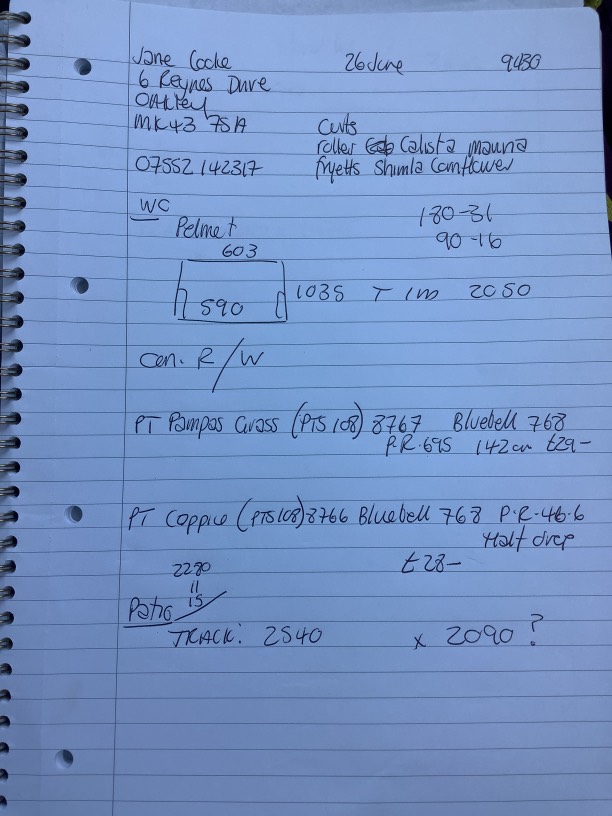 Jane Cocke 26 June 9430
6 Reynes Drive
OAKLEY
MK43 7SA Curts
roller Calista mauna
07552 142317 fryetts Shimla Cornflower
WC 180-31
Pelmet 90-16
603
590 1035 T 1m 2050
Con. R/W
PT Pampas Grass (PTS108) 8767 Bluebell 768
P.R. 695 142cm £29-
PT Coppice (PTS108) 8766 Bluebell 768 P.R-46.6
Half drop
2280 £28-
11
15
Patio
TRACK: 2540 x 2090?